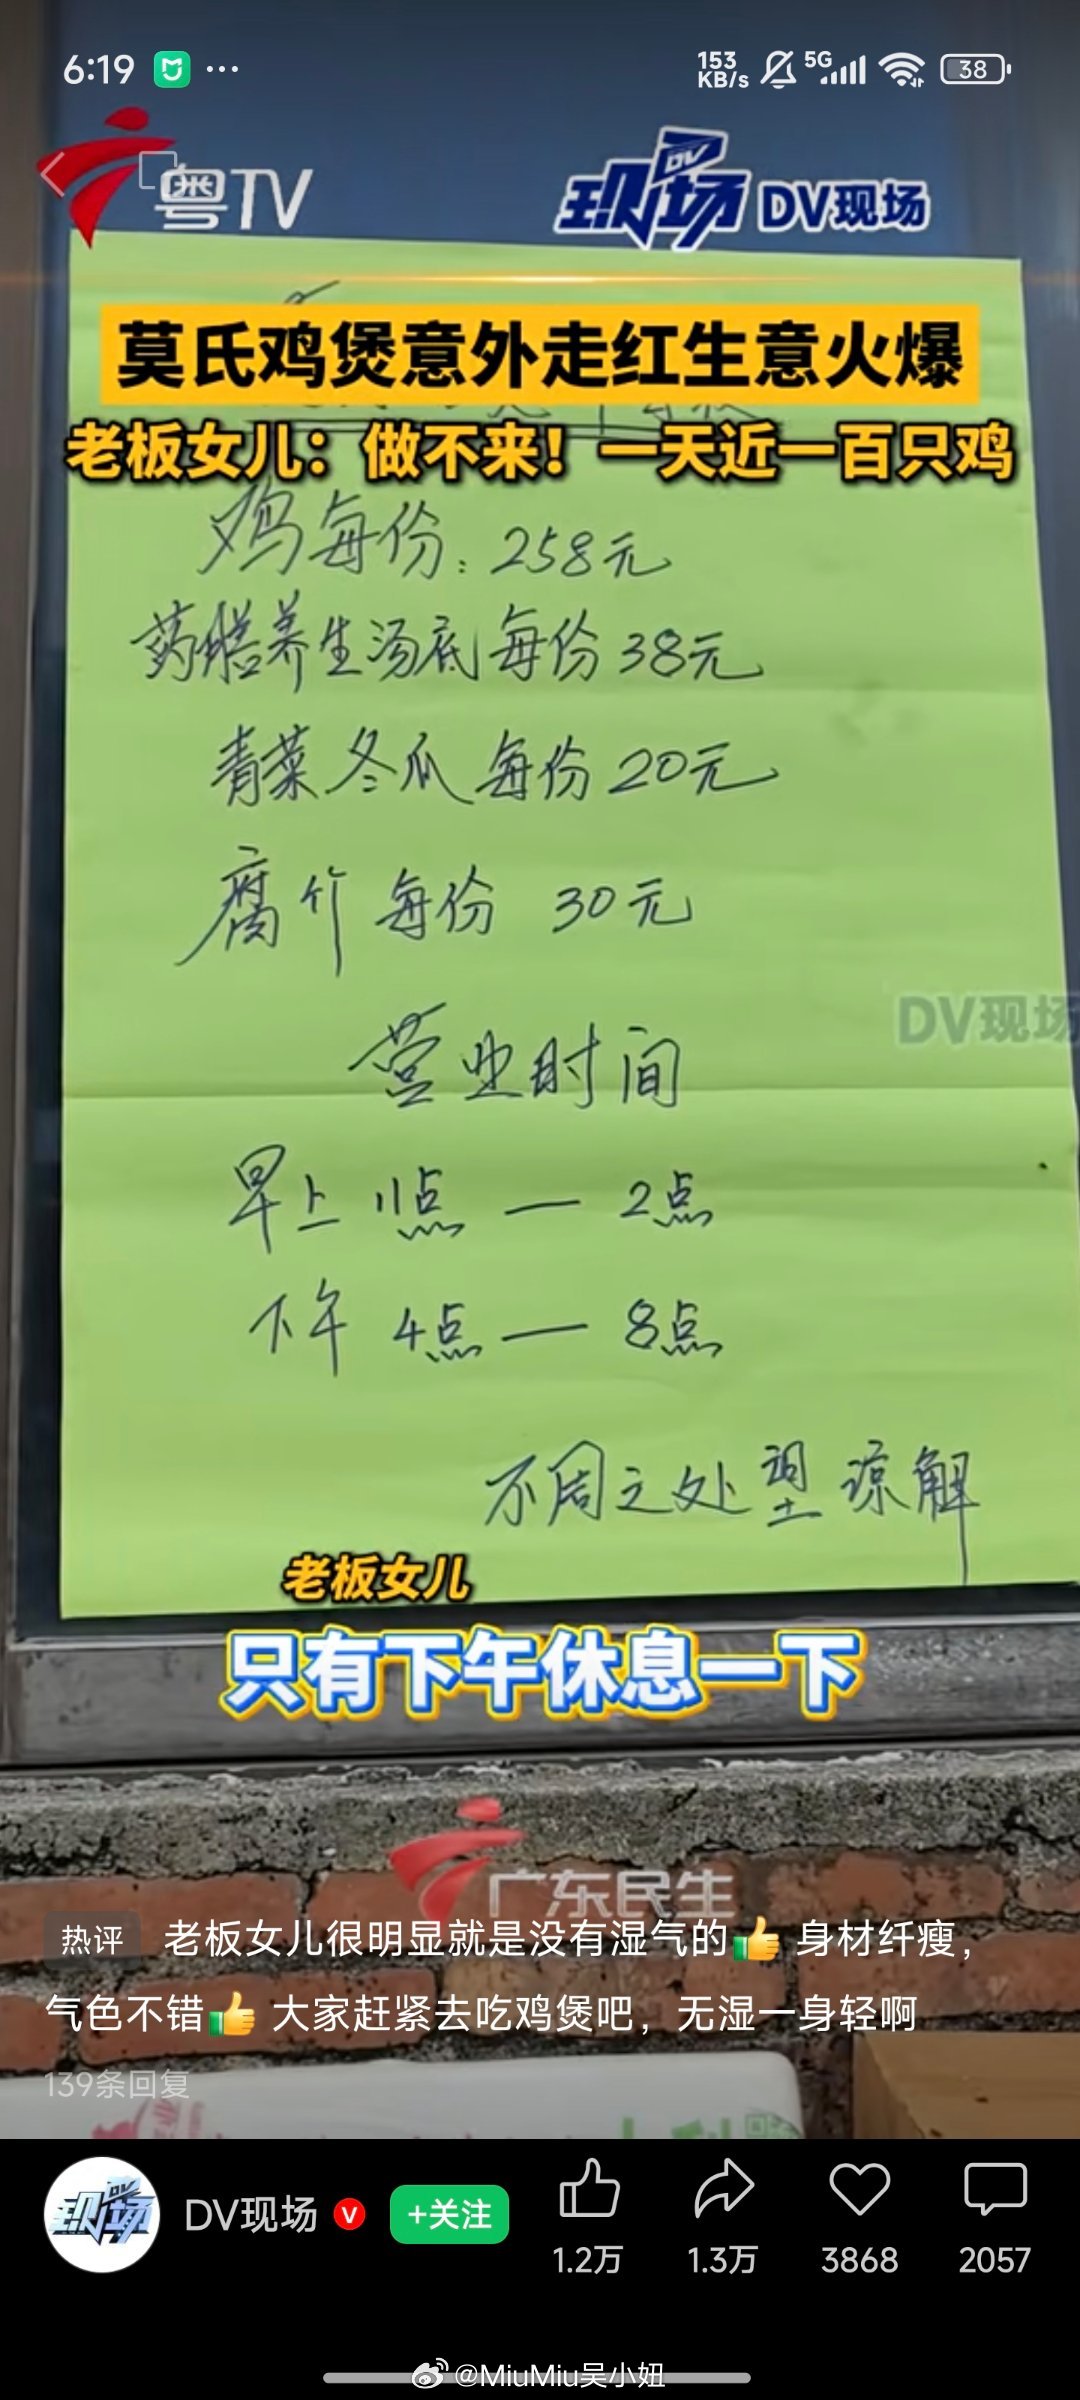 6:19
153 KB/s 5G 38
粤TV
现场 DV DV现场
莫氏鸡煲意外走红生意火爆
老板女儿：做不来！一天近一百只鸡
鸡每份：258元
药膳养生汤底每份38元
青菜冬瓜每份20元
腐竹每份 30元
DV现场
营业时间
早上 11点 — 2点
下午 4点 — 8点
不周之处望谅解
老板女儿
只有下午休息一下
广东民生
热评 老板女儿很明显就是没有湿气的👍身材纤瘦，
气色不错👍大家赶紧去吃鸡煲吧，无湿一身轻啊
139条回复
现场 DV
DV现场 V +关注
1.2万 1.3万 3868 2057
@MiuMiu吴小妞